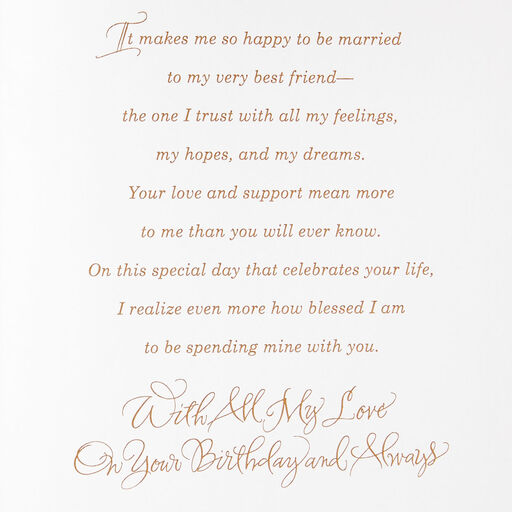 It makes me so happy to be married
to my very best friend—
the one I trust with all my feelings,
my hopes, and my dreams.
Your love and support mean more
to me than you will ever know.
On this special day that celebrates your life,
I realize even more how blessed I am
to be spending mine with you.
With All My Love
On Your Birthday and Always